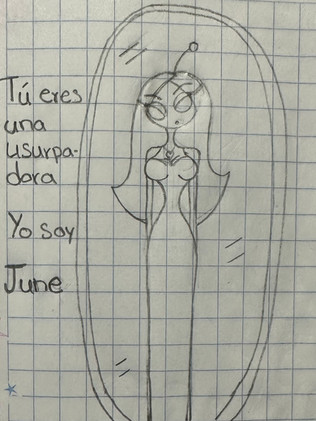 Tú eres
una
usurpa-
dora
Yo soy
June